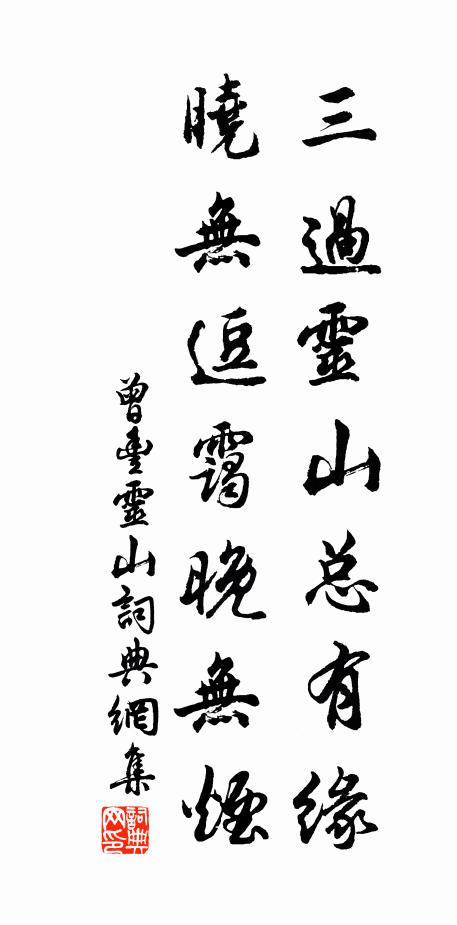 三過靈山总有緣
曉無逗靄晚無煙
曾豐靈山詞典網集
詞典网印